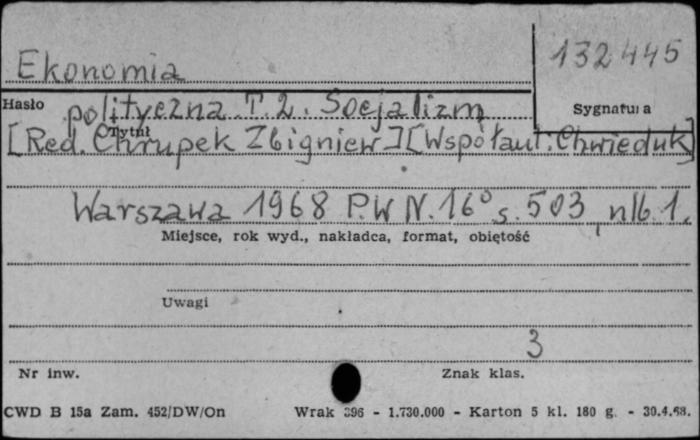 132445
Ekonomia
Hasło
polityczna. T. 2. Socjalizm
Sygnatura
Tytuł
[Red. Chrupek Zbigniew] [Współaut: Chwieduk]
Warszawa 1968 P.W N. 16° s. 503, nlb 1.
Miejsce, rok wyd., nakładca, format, objętość
Uwagi
3
Nr inw.
Znak klas.
CWD B 15a Zam. 452/DW/On Wrak 396 - 1.730.000 - Karton 5 kl. 180 g. - 30.4.68.